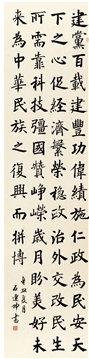 建黨百載建豐功偉績施仁政為民安天
下之心促經濟繁榮穩政治外交改民生
所需靠科技彊國贊崢嶸歲月盼美好未
來為中華民族之復興而拼搏
辛丑月
石書